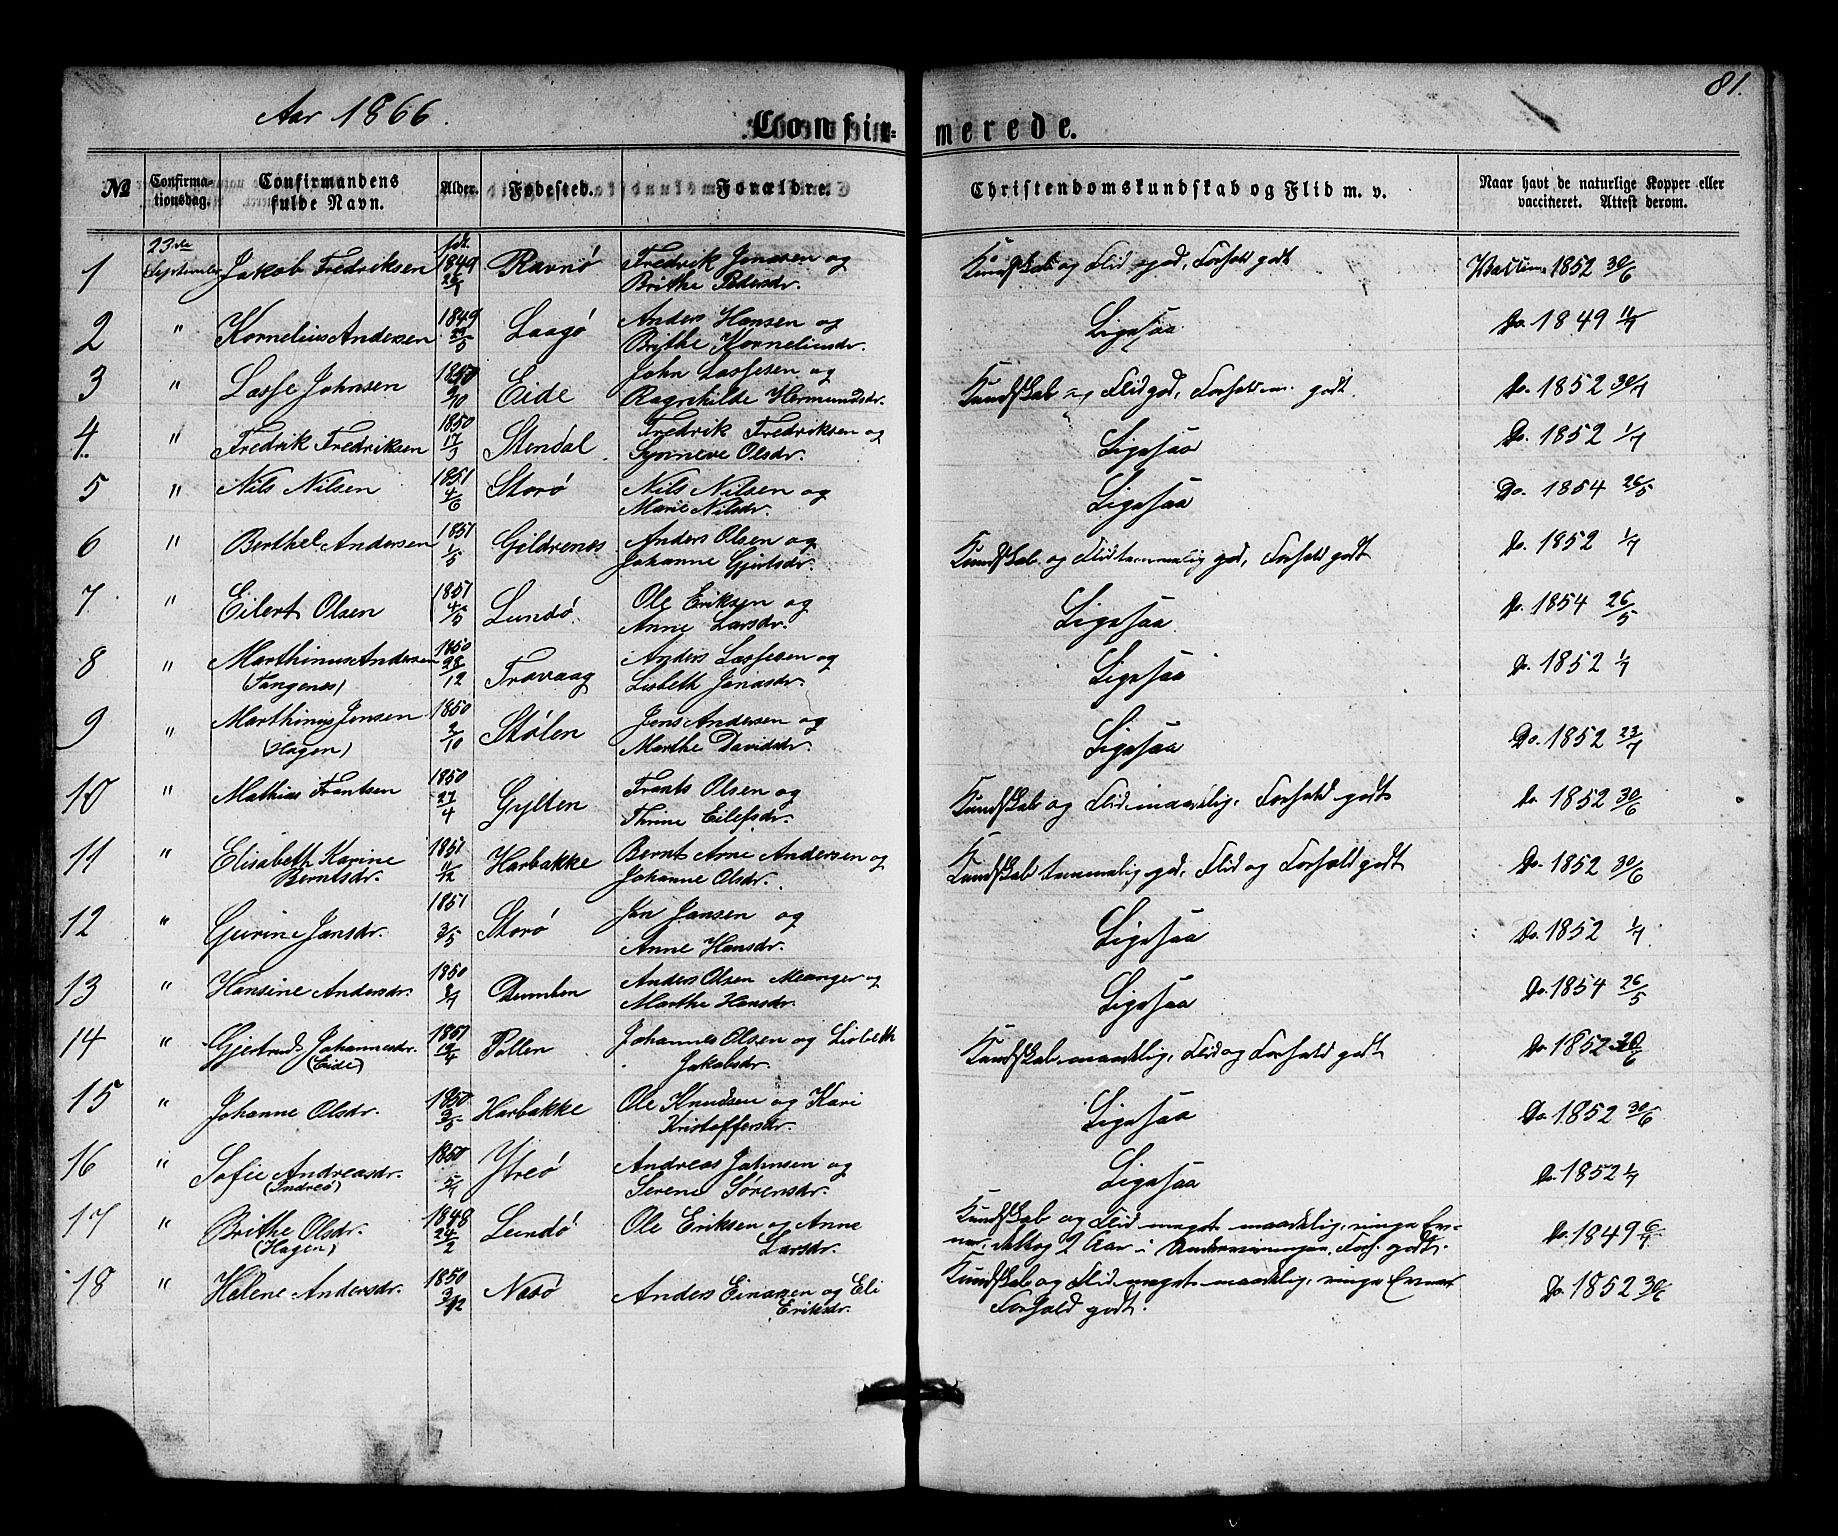 81.
Aar 1866.
Confir=
merede.
№
Confirma-
tionsdag.
Confirmandens
fulde Navn.
Alder.
Fødested.
Forældre.
Christendomskundskab og Flid m. v.
Naar havt de naturlige Kopper eller
vaccineret. Attest derom.
1 23de September Jakob Fredriksen fdt. 1849 Ravnø Fredrik Jonasen og
Brithe Pedersdr. Kundskab og Flid god, Forhold godt 1852 30/6
2 " Kornelius Andersen 1849 29/5 Laagø Anders Hansen og
Brithe Korneliusdr. Ligesaa Do. 1849 11/7
3 " Lasse Johnsen 1850 Eide John Lassesen og
Ragnhilde Hermundsdr. Kundskab og Flid god, Forhold godt. Do. 1852
4. " Fredrik Fredriksen 1850 17/3 Stendal Fredrik Fredriksen og
Synneve Olsdr. Ligesaa Do. 1852 1/7
5 " Nils Nilsen 1851 4/6 Storø Nils Nilsen og
Marie Nilsdr. Ligesaa Do. 1854 26/5
6 " Berthel Andersen 1851 1/5 Gildrenes Anders Olsen og
Johanne Gjertsdr. Kundskab og Flid temmelig god, Forhold godt Do. 1852 1/7
7 " Eilert Olsen 1851 4/5 Lundø. Ole Eriksen og
Anne Larsdr. Ligesaa Do. 1854 26/5
8 " Marthinus Andersen
(Tangenes) 1850 28/12 Trovaag Anders Lassesen og
Lisbeth Jonasdr. Ligesaa Do. 1852 1/7
9 " Marthinus Jensen
(Hagen) 1850 2/10 Stølen Jens Andersen og
Marthe Davidsdr. Ligesaa Do. 1852 23/7
10 " Mathias Frantsen 1850 27/4 Gylten Frants Olsen og
Thrine Eilefsdr. Kundskab og Flid maadelig, Forhold godt Do 1852 30/6
11 " Elisabeth Karine
Berntsdr. 1851 11/12 Harbakke Bernt Arne Andersen og
Johanne Olsdr. Kundskab temmelig god, Flid og Forhold godt Do. 1852 30/6
12 " Gurine Jansdr. 1851 3/5 Storø Jan Jansen og
Anne Hansdr. Ligesaa Do. 1852 1/7.
13 " Hansine Andersdr. 1850 Anders Olsen Meanger og
Marthe Hansdr. Ligesaa Do. 1854 26/5
14 " Gjertrud Johannesdr.
(Eide) 1851 Pollen Johannes Olsen og Lisbeth
Jakobsdr. Kundskab maadelig, Flid og Forhold godt Do 1852 30/6
15 " Johanne Olsdr. 1850 3/5 Harbakke Ole Knudsen og Kari
Kristoffersdr. Ligesaa Do. 1852 30/6
16 " Sofie Andreasdr.
(Indreø) 1850 Ytreø Andreas Johnsen og
Serene Sørensdr. Ligesaa Do. 1852 1/7
17 " Brithe Olsdr.
(Hagen) 1848 24/2 Lundø Ole Eriksen og Anne
Larsdr. Kundskab og Flid meget maadelig, ringe Ev-
ner, deltog 2 Aar i Undervisningen, Forh. godt. Do. 1849
18 " Helene Andersdr. 1850 3/12 Nesø Anders Einarsen og Eli
Eriksdr. Kundskab og Flid meget maadelig, ringe Evner
Forhold godt. Do. 1852 30/6